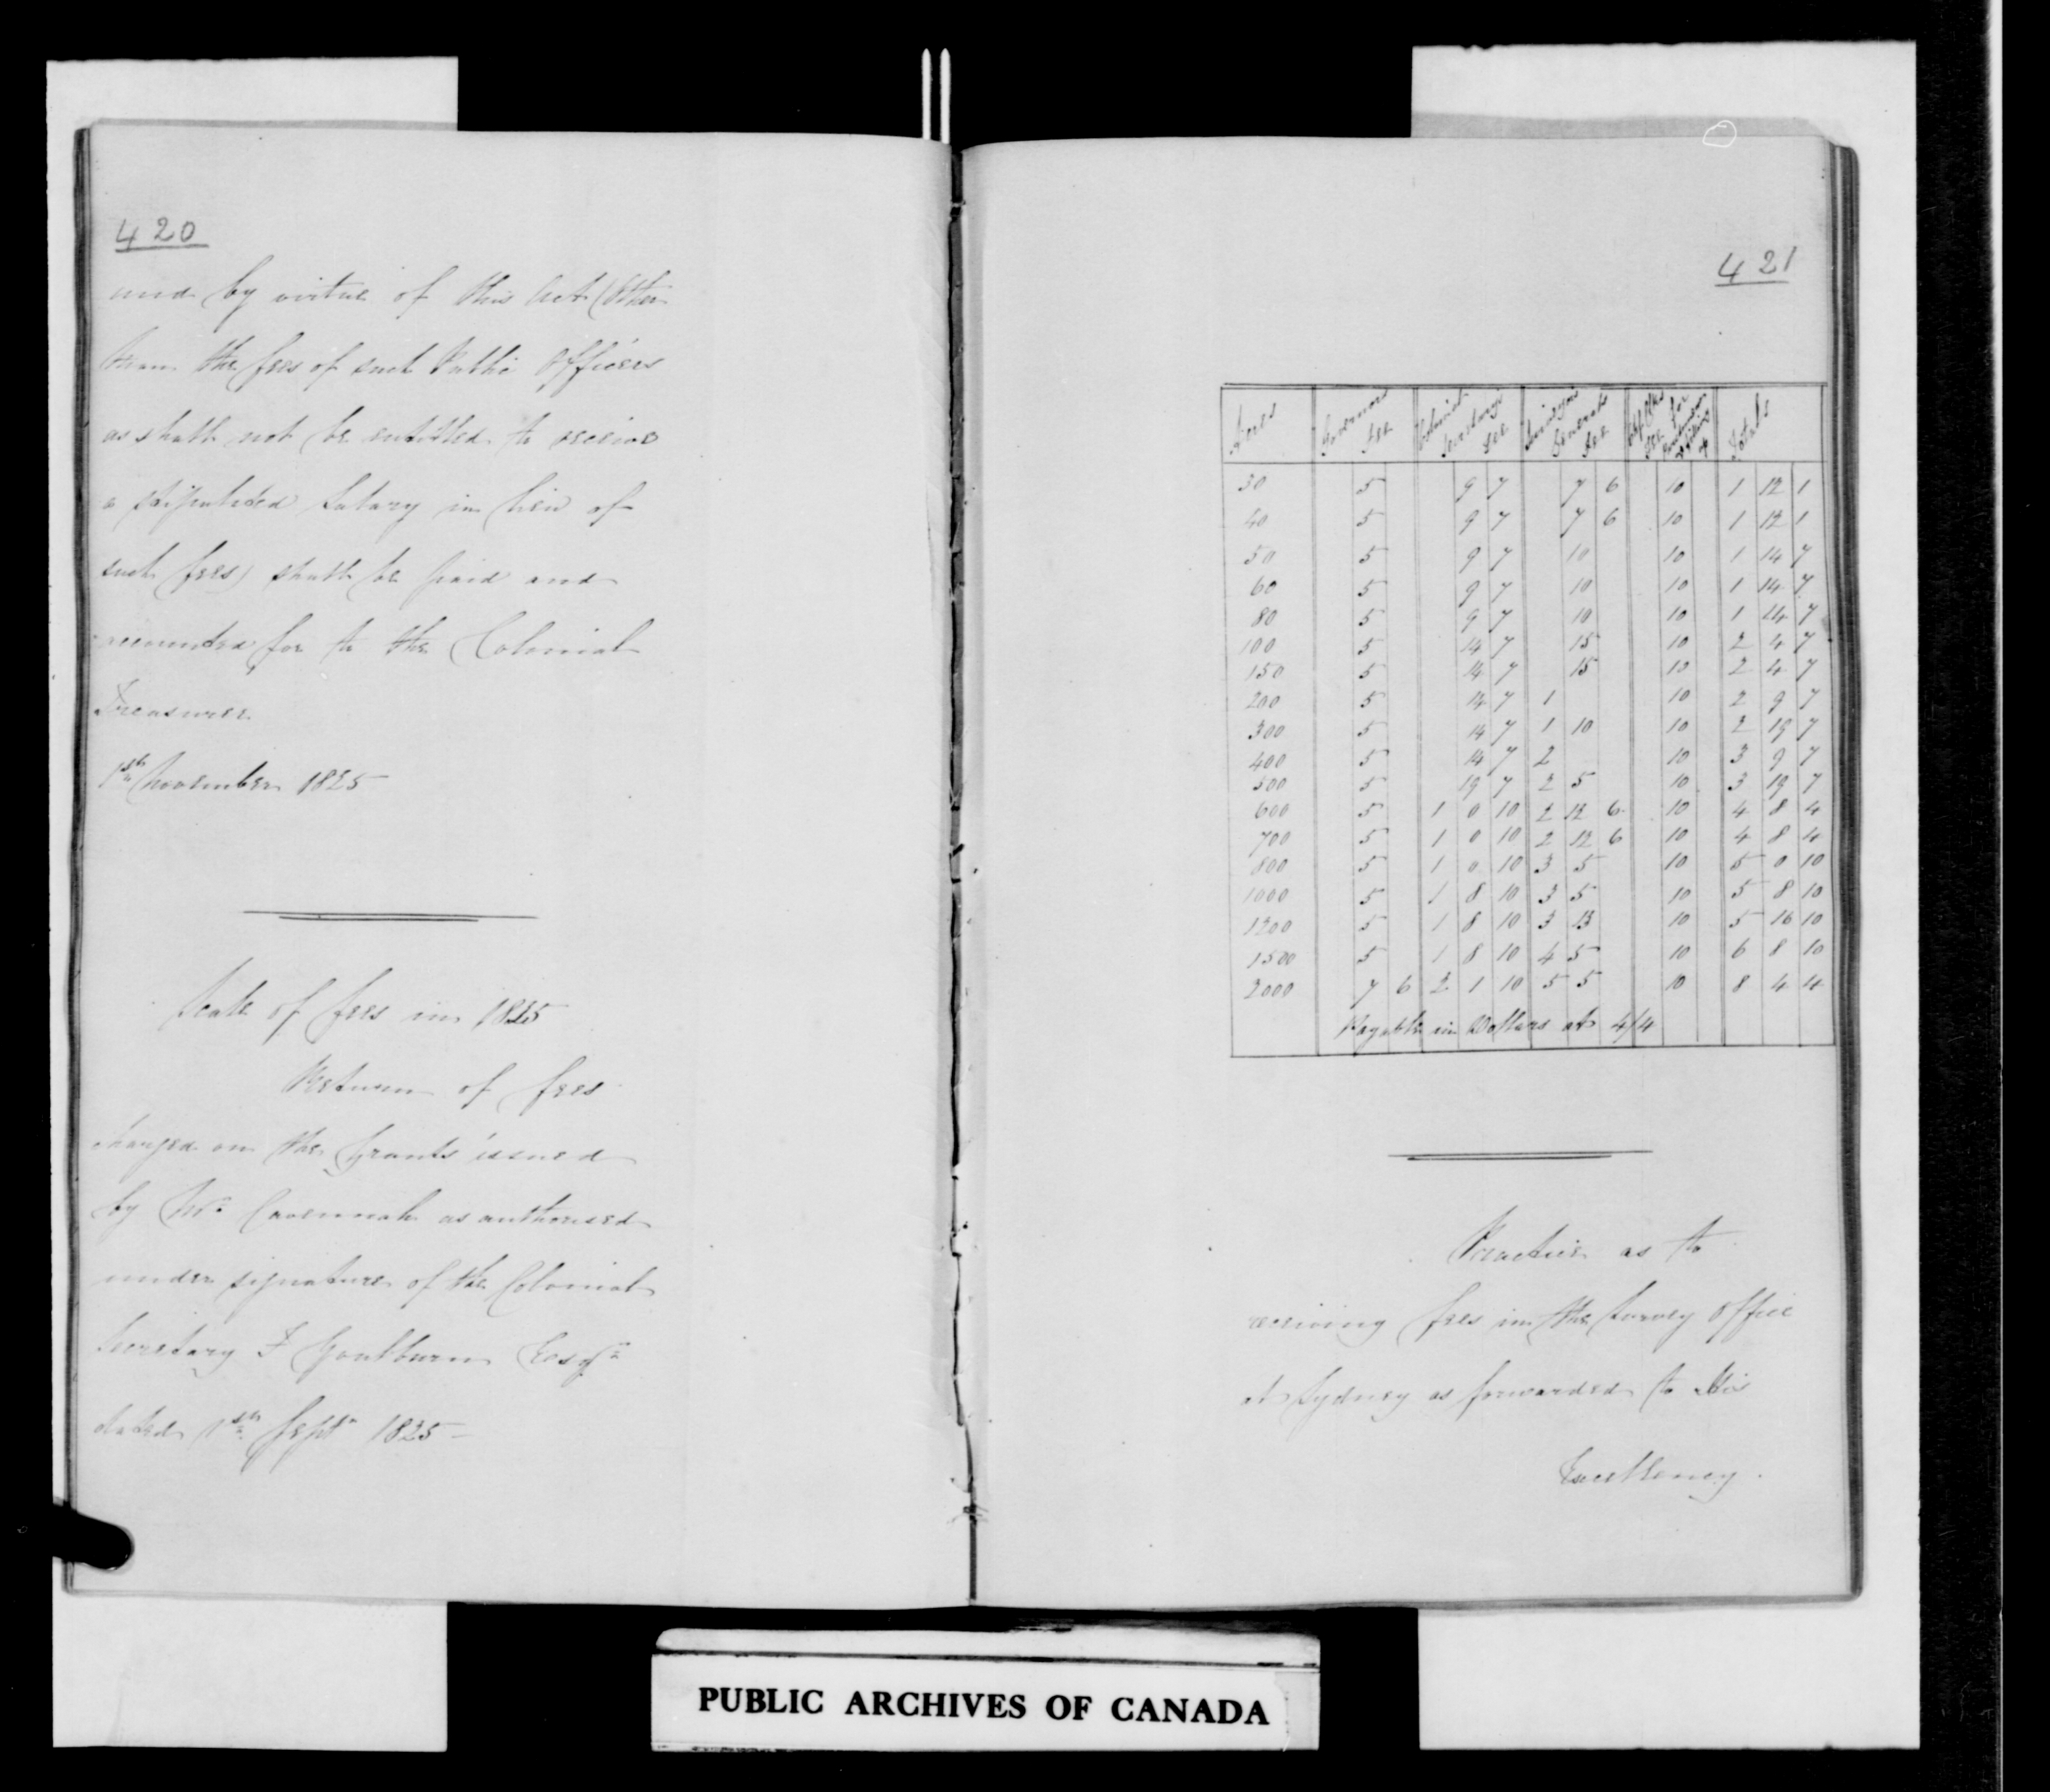 420
and by virtue of this Act (other
than the fees of such Public Officers
as shall not be entitled to receive
a stipulated Salary in lieu of
such fees) shall be paid and
accounted for to the Colonial
Treasurer
1st November 1825
Scale of fees in 1825
Return of fees
charged on the Grants issued
by Mr as authorised
under signature of the Colonial
Secretary F Goulburn Esqr
dated 1st Septr 1825 -
421
Acres Governors fee Colonial Secretarys fee Surveyor Generals fee fee for Totals
30 5 9 7 7 6 10 1 12 1
40 5 9 7 7 6 10 1 12 1
50 5 9 7 10 10 1 14 7
60 5 9 7 10 10 1 14 7
80 5 9 7 10 10 1 14 7
100 5 14 7 15 10 2 4 7
150 5 14 7 15 10 2 4 7
200 5 14 7 1 10 2 9 7
300 5 14 7 1 10 10 2 19 7
400 5 14 7 2 10 3 9 7
500 5 19 7 2 5 10 3 19 7
600 5 1 0 10 2 12 6 10 4 8 4
700 5 1 0 10 2 12 6 10 4 8 4
800 5 1 0 10 3 5 10 5 0 10
1000 5 1 8 10 3 5 10 5 8 10
1200 5 1 8 10 3 13 10 5 16 10
1500 5 1 8 10 4 5 10 6 8 10
2000 7 6 2 1 10 5 5 10 8 4 4
Payable in Dollars at 4/4
Practice as to
receiving fees in the Survey Office
at Sydney as forwarded to His
Excellency.
PUBLIC ARCHIVES OF CANADA